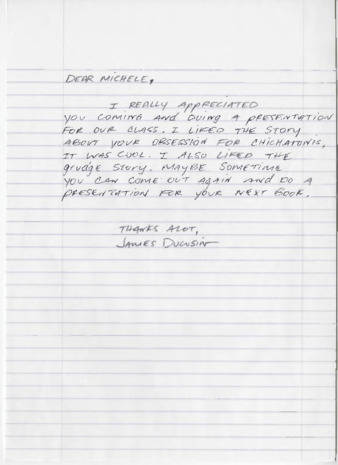 DEAR MICHELE,
I REALLY APPRECIATED
YOU COMING AND DOING A PRESENTATION
FOR OUR CLASS. I LIKED THE STORY
ABOUT YOUR OBSESSION FOR
IT WAS COOL. I ALSO LIKED THE
grudge STORY. MAYBE SOMETIME
YOU CAN COME OUT AGAIN AND DO A
PRESENTATION FOR YOUR NEXT BOOK.
THANKS ALOT,
JAMES